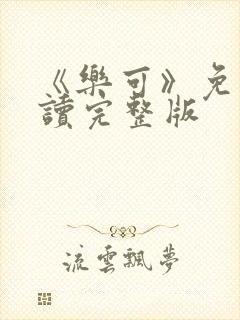 《樂可》免
讀完整版
流雲飄夢